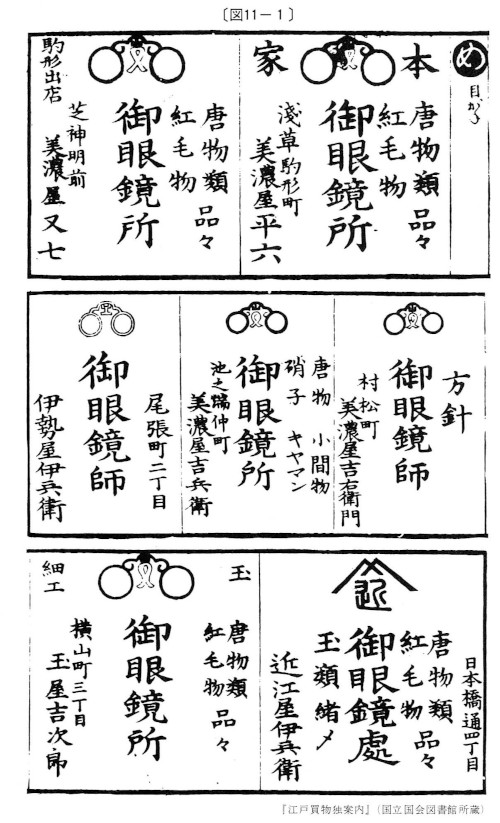 〔図11－1〕
め
目がね
本
家
唐物類
紅毛物
品々
御眼鏡所
淺草駒形町
美濃屋平六
唐物類
紅毛物
品々
御眼鏡所
芝神明前
美濃屋又七
駒形出店
方針
御眼鏡師
村松町
美濃屋吉右衛門
唐物 小間物
硝子 キヤマン
御眼鏡所
池之端仲町
美濃屋吉兵衛
尾張町二丁目
御眼鏡師
伊勢屋伊兵衛
日本橋通四丁目
唐物類
紅毛物
品々
御眼鏡處
玉類緒〆
近江屋伊兵衛
玉
細工
唐物類
紅毛物
品々
御眼鏡所
横山町三丁目
玉屋吉次郎
『江戸買物独案内』（国立国会図書館所蔵）